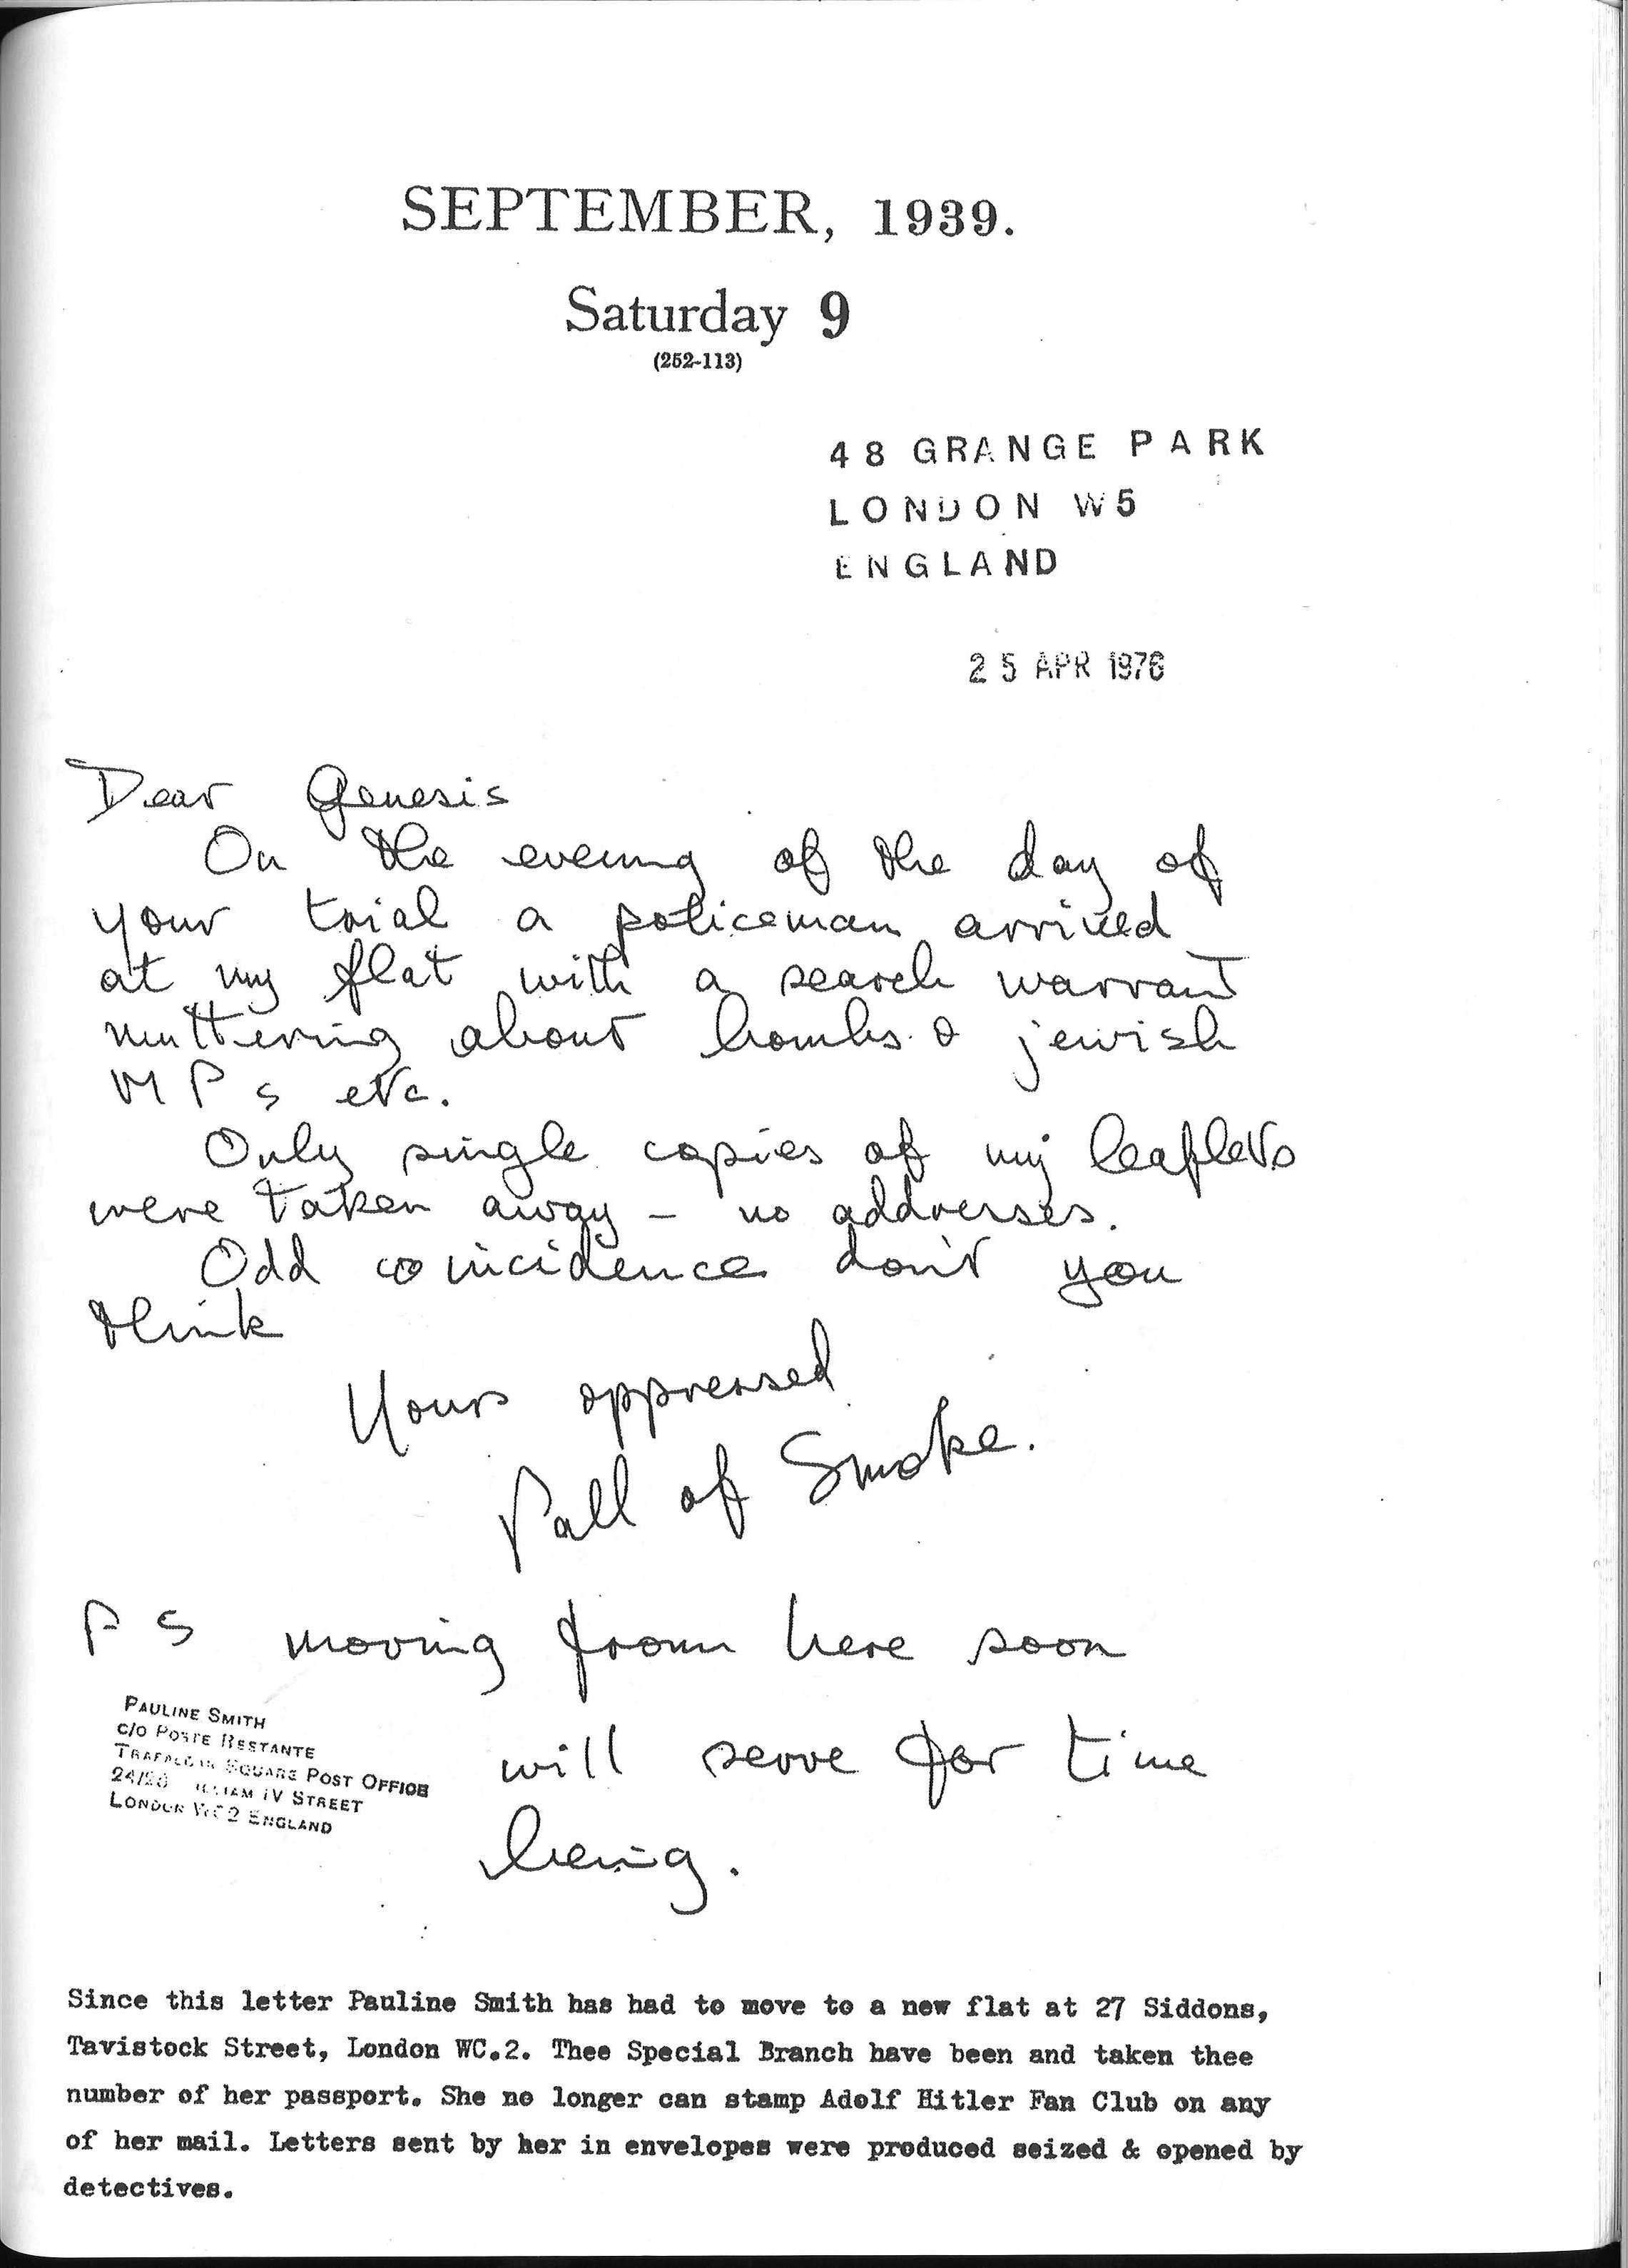 SEPTEMBER, 1939.
Saturday 9
(252-113)
48 GRANGE PARK
LONDON W5
ENGLAND
25 APR 1976
Dear Genesis
On the evening of the day of
your trial a policeman arrived
at my flat with a search warrant
muttering about bombs & jewish
MPs etc.
Only single copies of my leaflets
were taken away – no addresses.
Odd coincidence don't you
think
Yours oppressed
Pall of Smoke.
PS moving from here soon
PAULINE SMITH
C/O POSTE RESTANTE
TRAFALGAR SQUARE POST OFFICE
24/28 WILLIAM IV STREET
LONDON WC2 ENGLAND
will serve for time
being.
Since this letter Pauline Smith has had to move to a new flat at 27 Siddons,
Tavistock Street, London WC.2. Thee Special Branch have been and taken thee
number of her passport. She no longer can stamp Adolf Hitler Fan Club on any
of her mail. Letters sent by her in envelopes were produced seized & opened by
detectives.